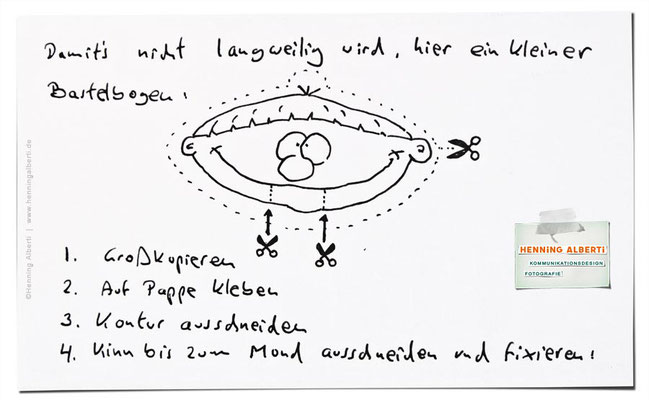 Damit's nicht langweilig wird, hier ein kleiner
Bastelbogen:
1. Großkopieren
2. Auf Pappe kleben
3. Kontur ausschneiden
4. Kinn bis zum Mund ausschneiden und fixieren!
HENNiNG ALBERTi
KOMMUNIKATIONSDESIGN
FOTOGRAFIE
©Henning Alberti | www.henningalberti.de